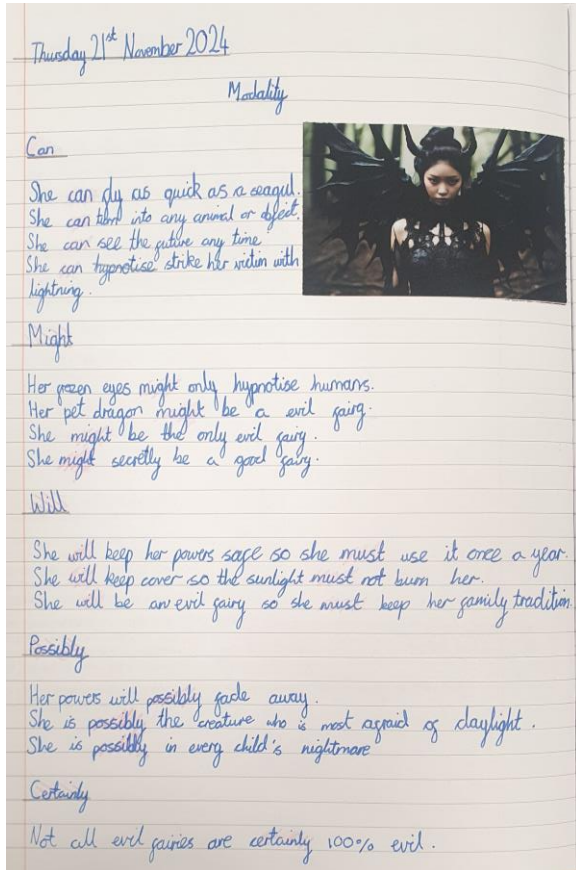 Thursday 21st November 2024
Modality
Can
She can fly as quick as a seagul.
She can turn into any animal or object.
She can see the future any time
She can hypnotise strike her victim with
lightning.
Might
Her frozen eyes might only hypnotise humans.
Her pet dragon might be a evil fairy.
She might be the only evil fairy.
She might secretly be a good fairy.
Will
She will keep her powers safe so she must use it once a year.
She will keep cover so the sunlight must not burn her.
She will be an evil fairy so she must keep her family tradition.
Possibly
Her powers will possibly fade away.
She is possibly the creature who is most afraid of daylight.
She is possibly in every child's nightmare
Certainly
Not all evil fairies are certainly 100% evil.